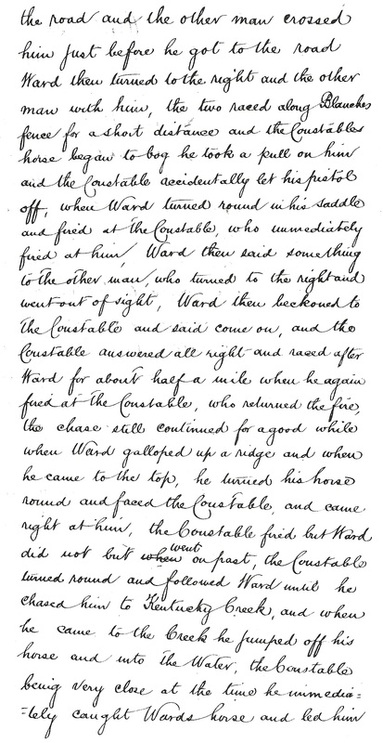 the road and the other man crossed
him just before he got to the road
Ward then turned to the right and the other
man with him, the two raced along Blanches
fence for a short distance and the Constables
horse began to bog he took a pull on him
and the Constable accidentally let his pistol
off, when Ward turned round in his saddle
and fired at the Constable, who immediately
fired at him, Ward then said something
to the other man, who turned to the right and
went out of sight, Ward then beckoned to
the Constable and said come on, and the
Constable answered all right and raced after
Ward for about half a mile when he again
fired at the Constable, who returned the fire,
the chase still continued for a good while
when Ward galloped up a ridge and when
he came to the top, he turned his horse
round and faced the Constable, and came
right at him, the Constable fired but Ward
did not but when went on past, the Constable
turned round and followed Ward until he
chased him to Kentucky Creek, and when
he came to the Creek he jumped off his
horse and into the Water, the Constable
being very close at the time he immedia=
=tely caught Wards horse and led him